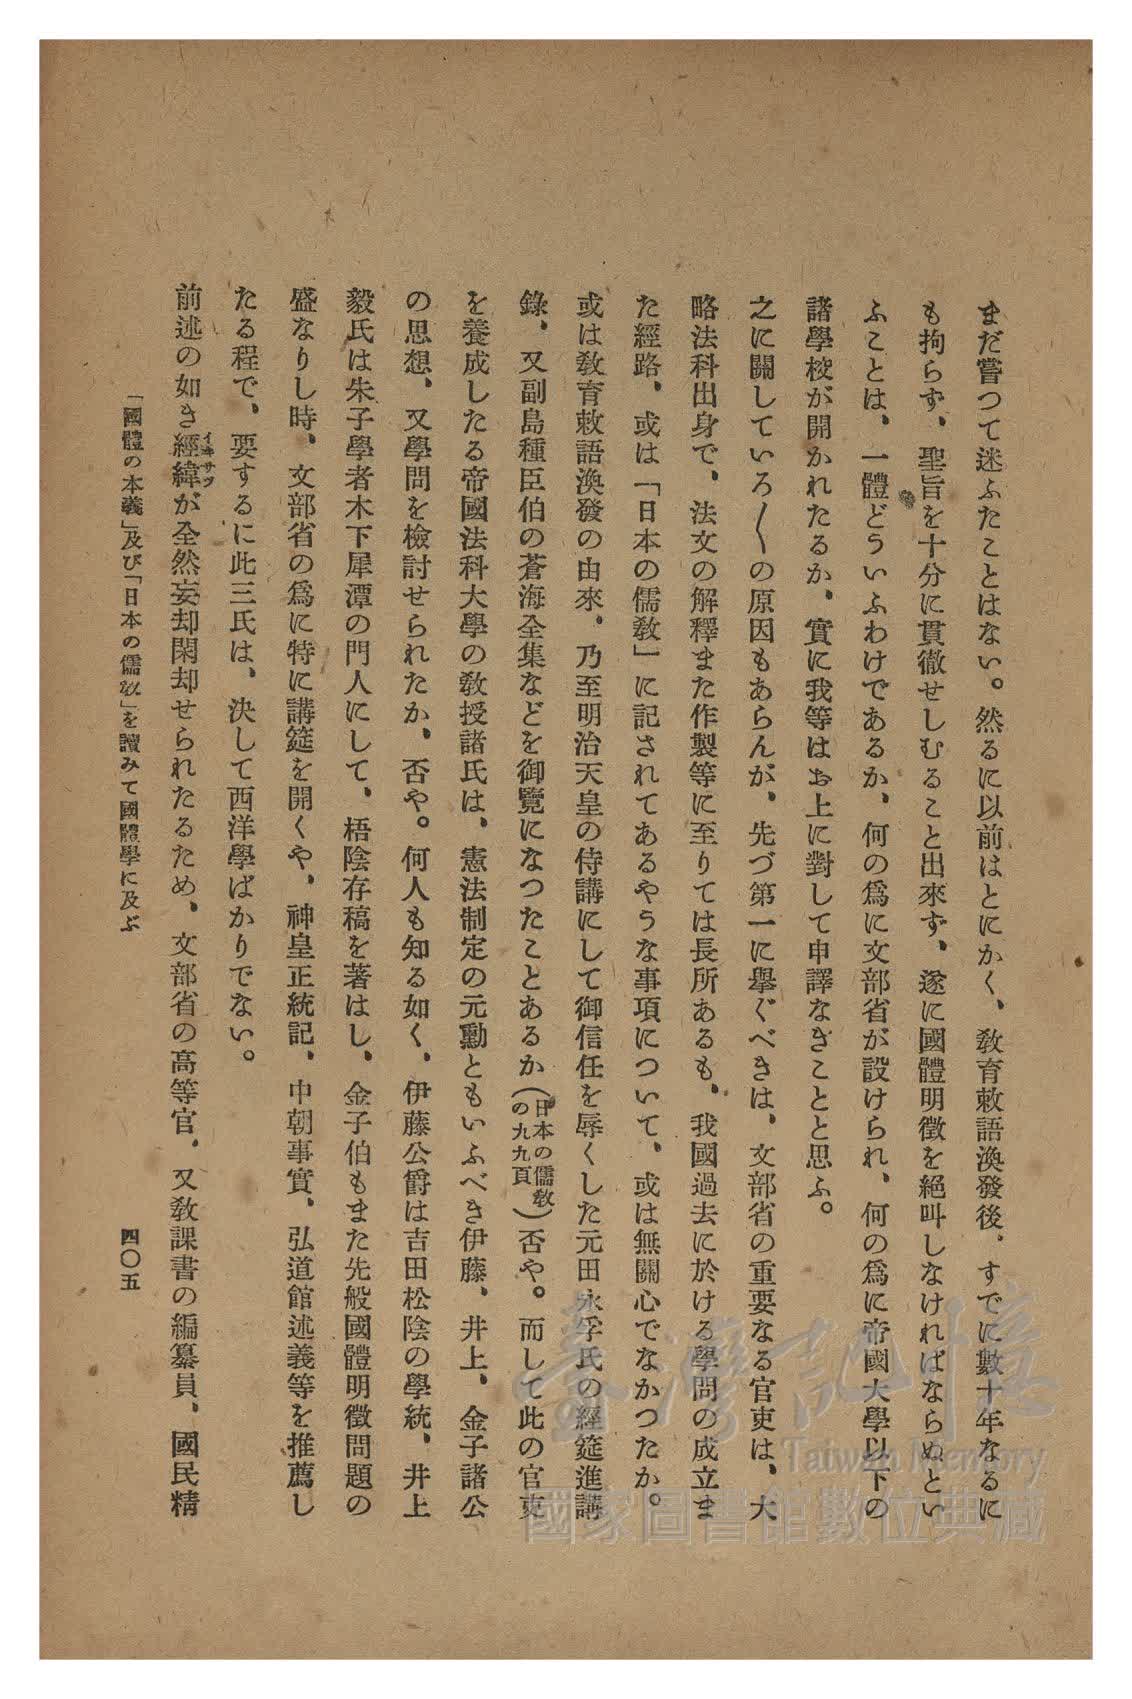 まだ嘗つて迷ふたことはない。然るに以前はとにかく、敎育敕語渙發後、すでに數十年なるに
も拘らず、聖旨を十分に貫徹せしむること出來ず、遂に國體明徵を絕叫しなければならぬとい
ふことは、一體どういふわけであるか、何の爲に文部省が設けられ、何の爲に帝國大學以下の
諸學校が開かれたるか、實に我等はお上に對して申譯なきことと思ふ。
之に關していろ〱の原因もあらんが、先づ第一に擧ぐべきは、文部省の重要なる官吏は、大
略法科出身で、法文の解釋また作製等に至りては長所あるも、我國過去に於ける學問の成立ま
た經路、或は「日本の儒敎」に記されてあるやうな事項について、或は無關心でなかつたか。
或は敎育敕語渙發の由來、乃至明治天皇の侍講にして御信任を辱くした元田永孚氏の經筵進講
錄、又副島種臣伯の蒼海全集などを御覽になつたことあるか(日本の儒敎の九九頁)否や。而して此の官吏
を養成したる帝國法科大學の敎授諸氏は、憲法制定の元勳ともいふべき伊藤、井上、金子諸公
の思想、又學問を檢討せられたか、否や。何人も知る如く、伊藤公爵は吉田松陰の學統、井上
毅氏は朱子學者木下犀潭の門人にして、梧陰存稿を著はし、金子伯もまた先般國體明徵問題の
盛なりし時、文部省の爲に特に講筵を開くや、神皇正統記、中朝事實、弘道館述義等を推薦し
たる程で、要するに此三氏は、決して西洋學ばかりでない。
前述の如き經緯イキサツが全然妄却閑却せられたるため、文部省の高等官、又敎課書の編纂員、國民精
「國體の本義」及び「日本の儒敎」を讀みて國體學に及ぶ
四〇五
臺灣記憶
Taiwan Memory
國家圖書館數位典藏